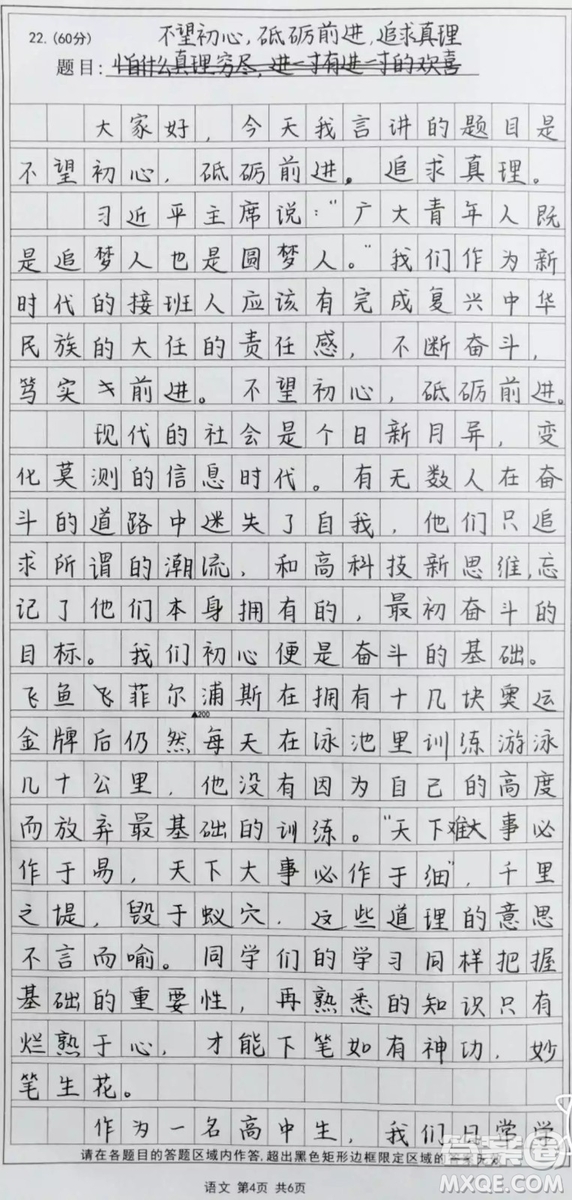 22. (60分) 不望初心，砥砺前进，追求真理
题目：怕什么真理穷尽，进一寸有进一寸的欢喜
大家好，今天我言讲的题目是
不望初心，砥砺前进。追求真理。
习近平主席说："广大青年人既
是追梦人也是圆梦人。"我们作为新
时代的接班人应该有完成复兴中华
民族的大任的责任感，不断奋斗，
笃实前进。不望初心，砥砺前进。
现代的社会是个日新月异，变
化莫测的信息时代。有无数人在奋
斗的道路中迷失了自我，他们只追
求所谓的潮流，和高科技新思维，忘
记了他们本身拥有的，最初奋斗的
目标。我们初心便是奋斗的基础。
飞鱼飞菲尔浦斯在拥有十几块奥运
▲200
金牌后仍然每天在泳池里训练游泳
几十公里，他没有因为自己的高度
而放弃最基础的训练。"天下难大事必
作于易，天下大事必作于细"，千里
之堤，毁于蚁穴．这些道理的意思
不言而喻。同学们的学习同样把握
基础的重要性，再熟悉的知识只有
烂熟于心，才能下笔如有神功，妙
笔生花。
作为一名高中生，我们日常学
请在各题目的答题区域内作答，超出黑色矩形边框限定区域的答案无效
语文 第4页 共6页
答案圈
MXQE.COM